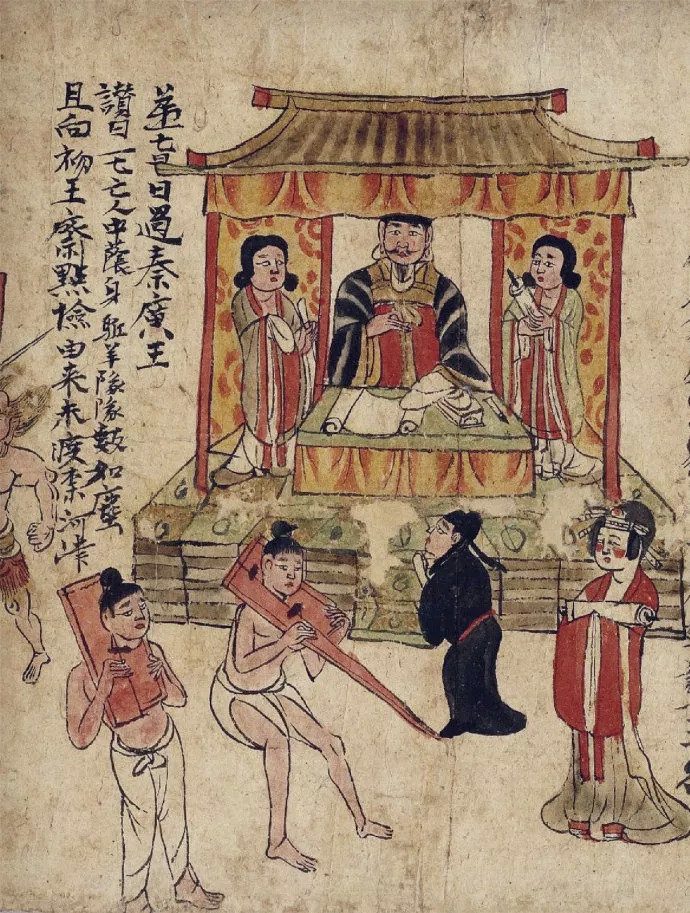 苐一七日過秦廣王
讃曰一七亡人中蔭身駈羊隊隊數如塵
且向初王齋點撿由来未渡柰河津